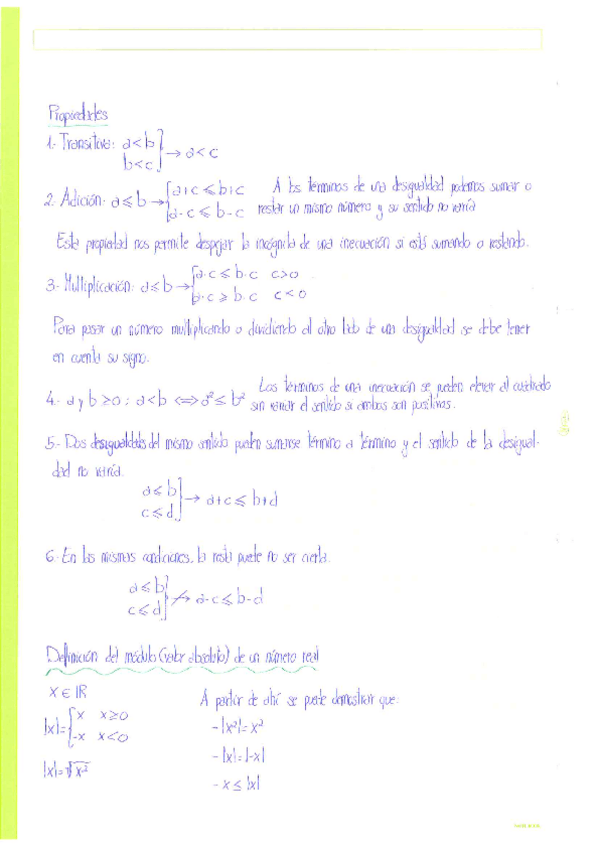 Propiedades
1.- Transitiva: a<b
b<c } → a<c
2. Adición: a⩽b → { a+c ⩽ b+c   A los términos de una desigualdad podemos sumar o
a-c ⩽ b-c   restar un mismo número y su sentido no varía
Esta propiedad nos permite despejar la incógnita de una inecuación si está sumando o restando.
3.- Multiplicación: a⩽b → { a·c ⩽ b·c   c>0
a·c ⩾ b·c   c<0
Para pasar un número multiplicando o dividiendo al otro lado de una desigualdad se debe tener
en cuenta su signo.
4.- a y b ⩾0 ; a<b ⟺ a²⩽ b²   Los términos de una inecuación se pueden elevar al cuadrado
sin variar el sentido si ambos son positivos.
5.- Dos desigualdades del mismo sentido pueden sumarse término a término y el sentido de la desigual-
dad no varía.
a⩽b
c⩽d } → a+c ⩽ b+d
6.- En las mismas condiciones, la resta puede no ser cierta.
a⩽b
c⩽d } ↛ a-c ⩽ b-d
Definición del módulo (valor absoluto) de un número real
x ∈ ℝ
|x|= { x   x⩾0
-x   x<0
|x|=√x²
A partir de ahí se puede demostrar que:
- |x²|= x²
- |x|=|-x|
- x ⩽ |x|